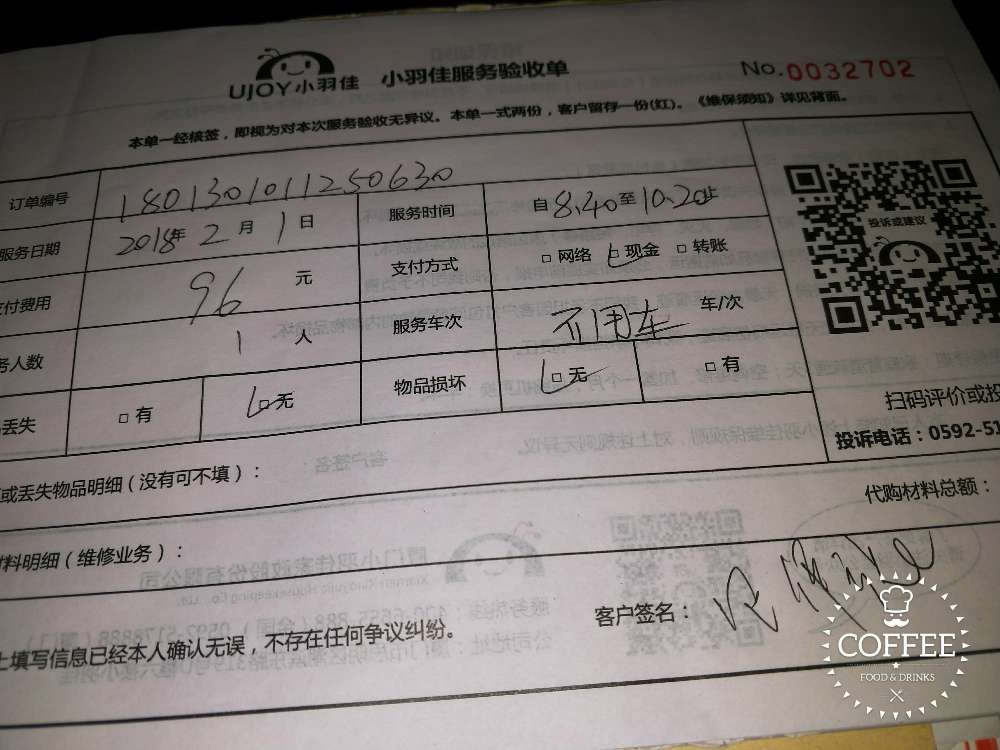 UJOY小羽佳 小羽佳服务验收单 No.0032702
本单一经核签，即视为对本次服务验收无异议。本单一式两份，客户留存一份(红)。《维保须知》详见背面。
订单编号 180130101125063​0
服务日期 2018年2月1日 服务时间 自8.40至10.20止
支付费用 96元 支付方式 □网络 □现金 □转账
务人数 1人 服务车次 不用车 车/次
丢失 □有 □无 物品损坏 □无 □有
投诉或建议
扫码评价或投
投诉电话：0592-51
或丢失物品明细（没有可不填）：
代购材料总额：
材料明细（维修业务）：
上填写信息已经本人确认无误，不存在任何争议纠纷。
客户签名：
COFFEE
FOOD & DRINKS